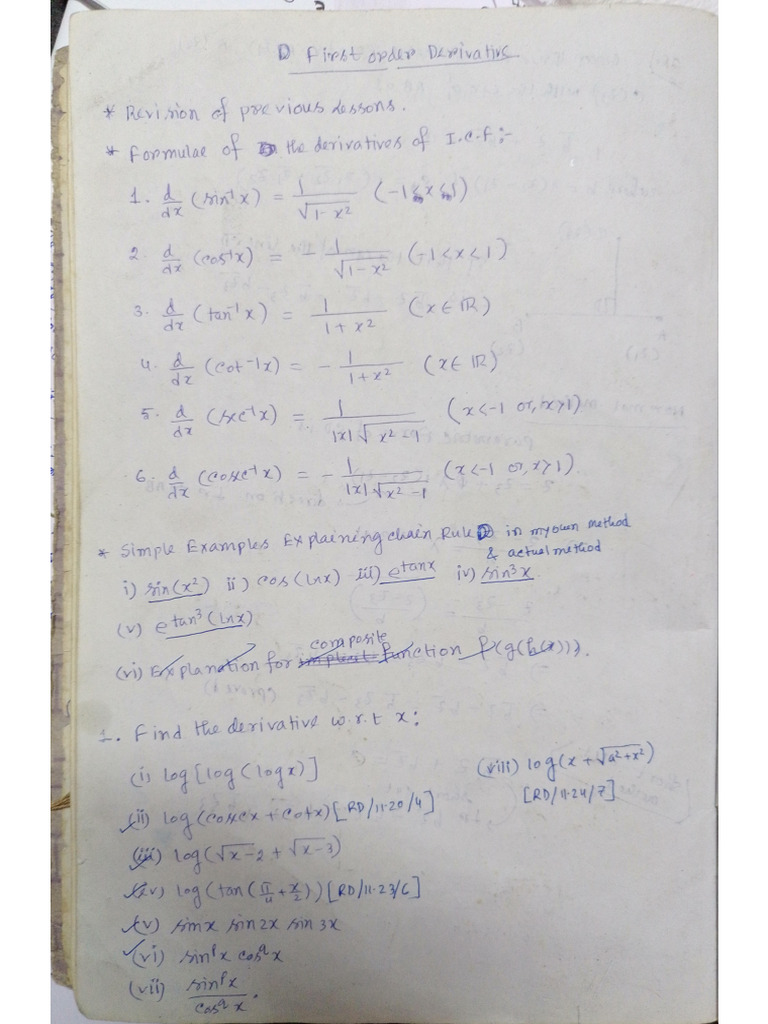 D First order Derivative
* Revision of previous lessons.
* Formulae of the derivatives of I.C.F:-
1. d/dx (sin⁻¹x) = 1/√(1-x²) (-1<x<1)
2. d/dx (cos⁻¹x) = - 1/√(1-x²) (-1<x<1)
3. d/dx (tan⁻¹x) = 1/(1+x²) (x∈ℝ)
4. d/dx (cot⁻¹x) = - 1/(1+x²) (x∈ℝ)
5. d/dx (sec⁻¹x) = 1/(|x|√(x²-1)) (x<-1 or, x>1)
6. d/dx (cosec⁻¹x) = - 1/(|x|√(x²-1)) (x<-1 or, x>1)
* Simple Examples Explaining chain Rule in my own method
& actual method
i) sin(x²) ii) cos(lnx) iii) e^tanx iv) sin³x
(v) e^tan³(lnx)
(vi) Explanation for composite function f(g(h(x))).
1. Find the derivative w.r.t x:
(i) log[log(logx)]
(viii) log(x+√(a²+x²))
[RD/11.24/7]
(ii) log(cosecx+cotx) [RD/11.20/4]
(iii) log(√x-2 + √x-3)
(iv) log(tan(π/4+x/2)) [RD/11.23/6]
(v) sinx sin2x sin3x
(vi) sinᵖx cos^q x
(vii) sinᵖx/cos^q x.